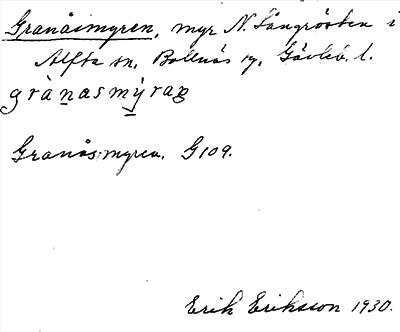 Granåsmyren, myr N. Långrösten i
Alfta sn, Bollnäs sg, Gävleb. l.
grànasmýraꞑ
Granåsmyren. G109.
Erik Eriksson 1930.